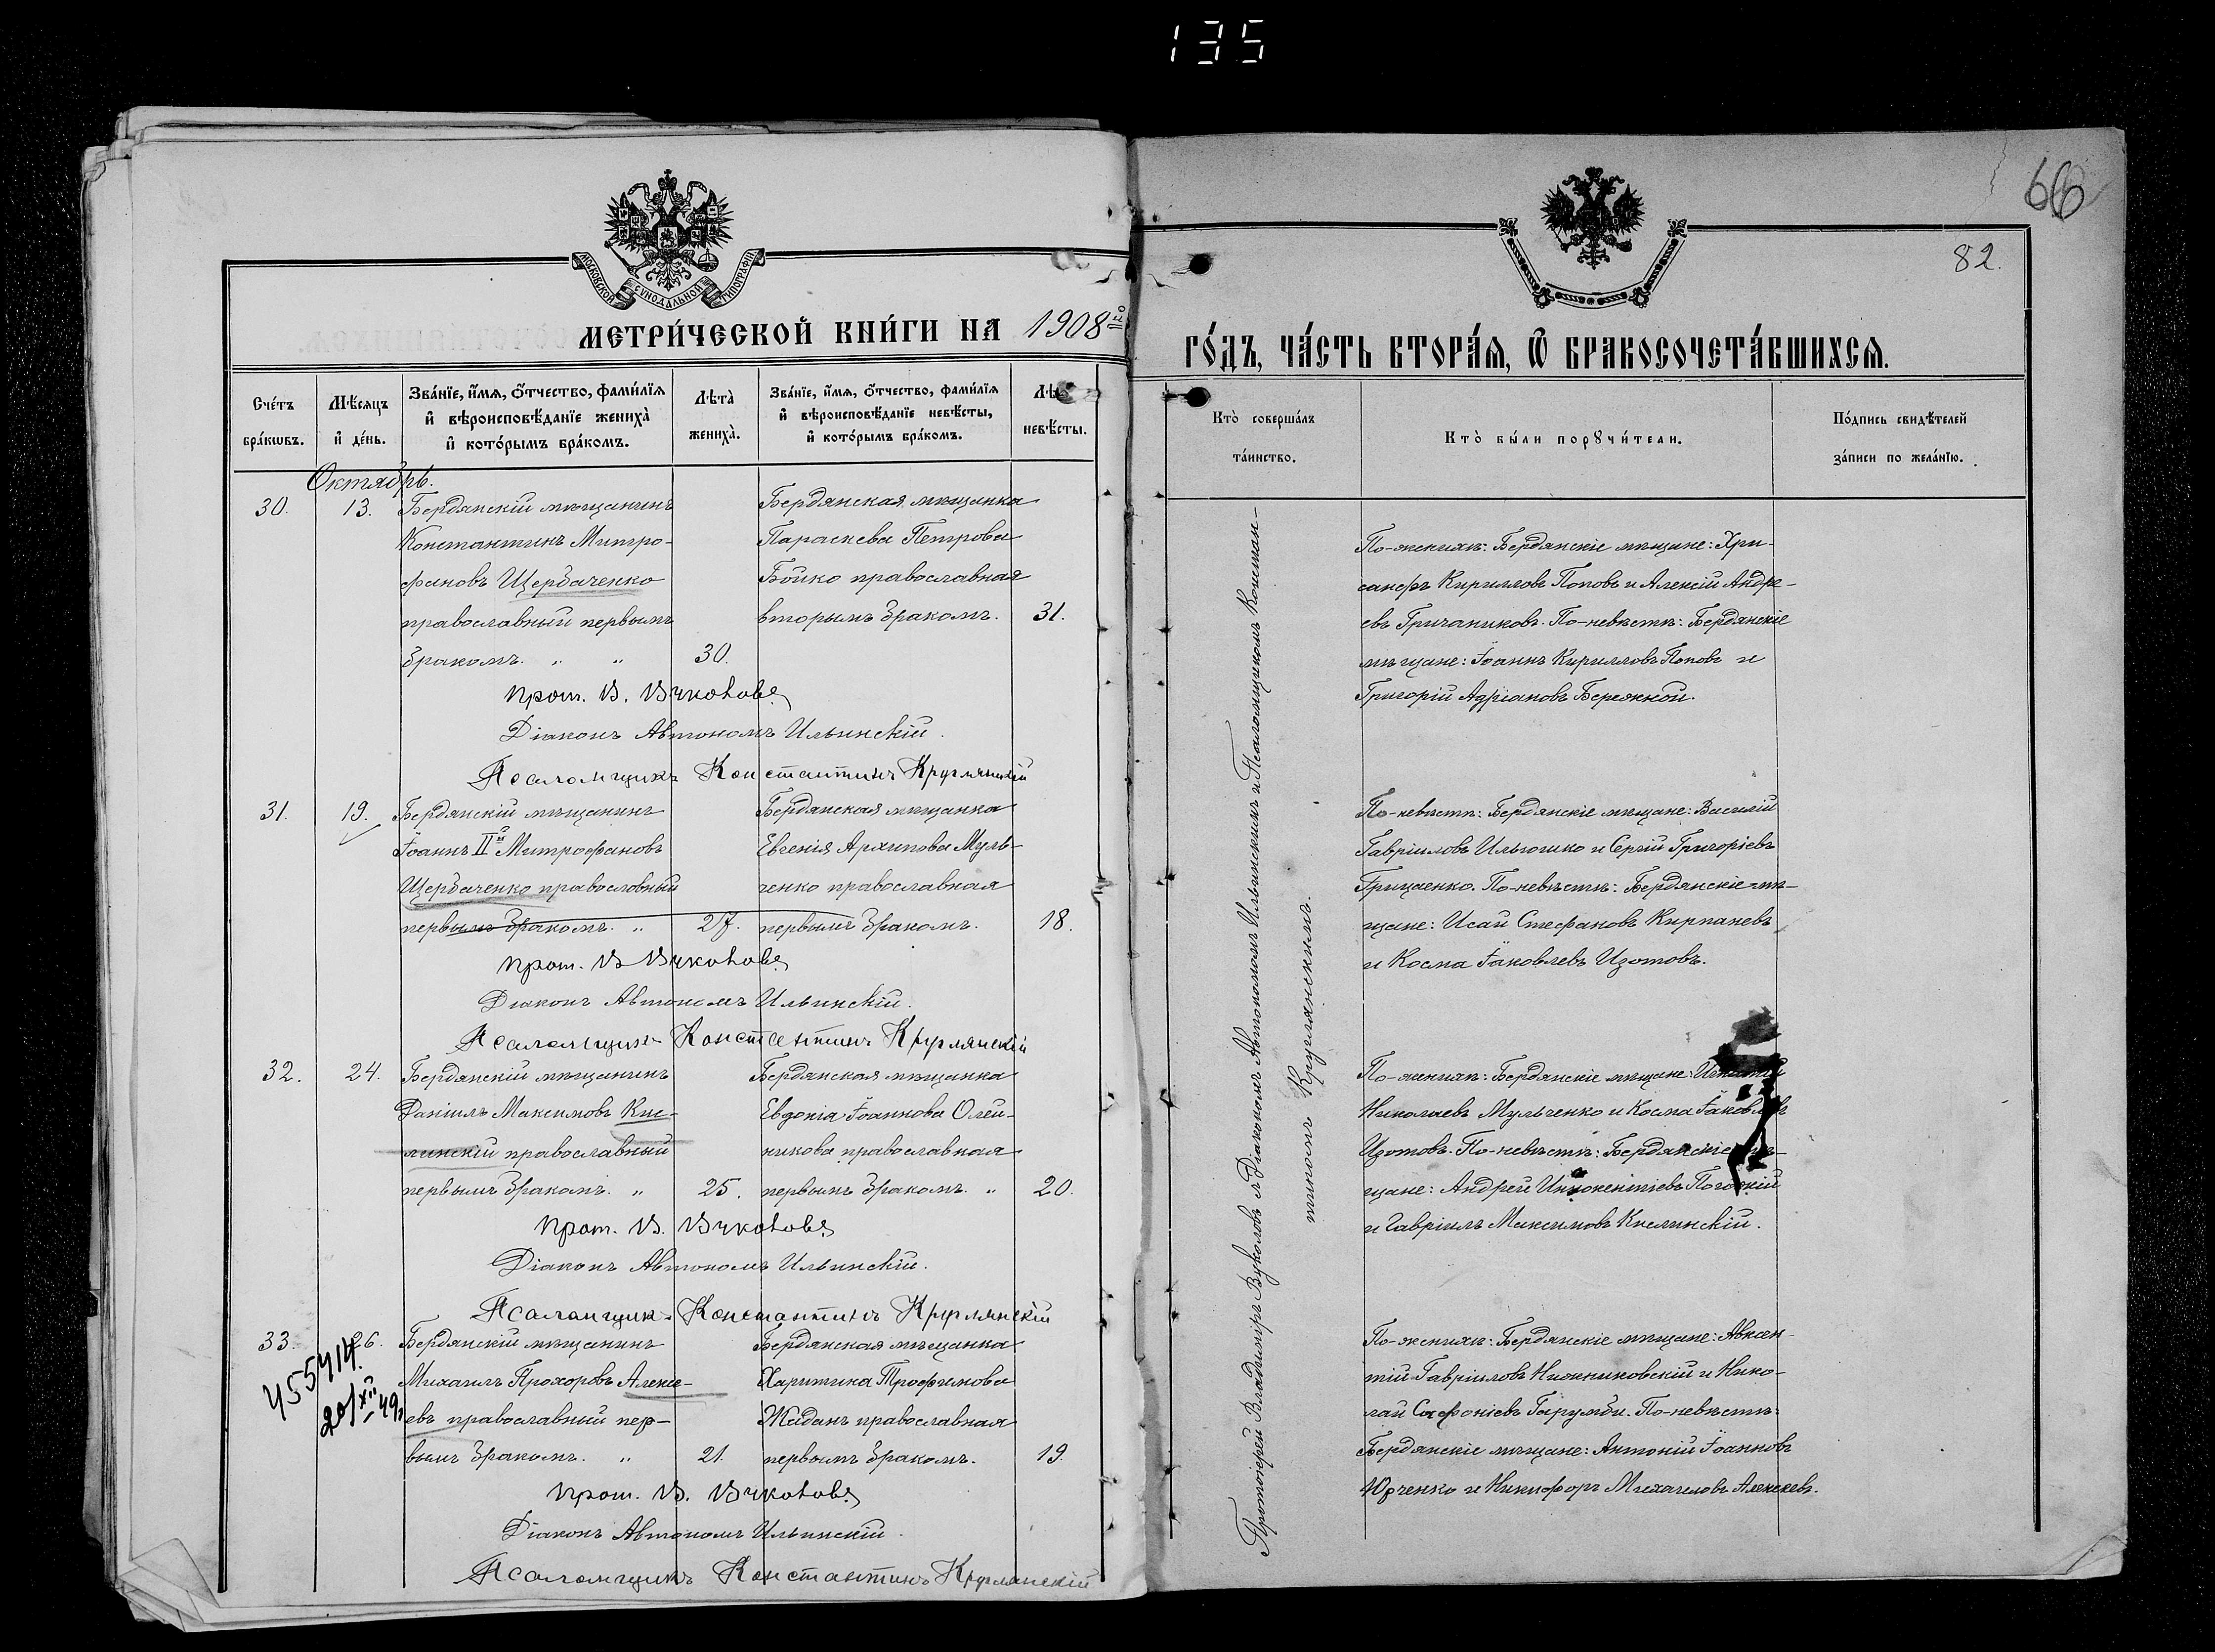 135
66
82.
МОСКОВСКОЙ СУНОДАЛЬНОЙ ТИПОГРАФІИ
МЕТРИ́ЧЕСКОЙ КНИ́ГИ НА 1908
ГО́ДЪ, ЧА́СТЬ ВТОРА́Ѧ, Ѽ БРАКОСОЧЕТА́ВШИХСѦ.
Сче́тъ бра́кѡвъ.
Мѣ́сяцъ и҆ де́нь.
Зва́нїе, и҆́мѧ, ѻ҆́тчество, фами́лїѧ
и҆ вѣроисповѣ́данїе жениха̀
и҆ кото́рымъ бра́комъ.
Лѣта̀ жениха̀.
Зва́нїе, и҆́мѧ, ѻ҆́тчество, фами́лїѧ
и҆ вѣроисповѣ́данїе невѣ́сты,
и҆ кото́рымъ бра́комъ.
невѣ́сты.
Кто̀ соверша́лъ та́инство.
Кто̀ бы́ли порꙋчи́тели.
По́дпись свидѣ́телей
за́писи по жела́нїю.
Октябрь.
30. 13. Бердянскій мѣщанинъ
Константинъ Митро-
фановъ Щербаченко
православный первымъ
бракомъ. „ „ 30.
Бердянская мѣщанка
Параскева Петрова
Бойко православная
вторымъ бракомъ. 31.
По-женихѣ: Бердянскіе мѣщане: Хри-
санфъ Кирилловъ Поповъ и Алексій Андре-
евъ Гричаниковъ. По-невѣстѣ: Бердянскіе
мѣщане: Іоаннъ Кирилловъ Поповъ и
Григорій Адріановъ Бережной.
Прот. В. Вуколовъ
Діаконъ Автономъ Ильинскій.
Псаломщикъ Константинъ Круглянскій
31. 19. Бердянскій мѣщанинъ
Іоаннъ IIй Митрофановъ
Щербаченко православный
первымъ бракомъ. „ 27.
Бердянская мѣщанка
Евгенія Архипова Муль-
ченко православная
первымъ бракомъ. 18.
По-невѣстѣ: Бердянскіе мѣщане: Василій
Гавріиловъ Ильюшко и Сергій Григоріевъ
Грищенко. По-невѣстѣ: Бердянскіе мѣ-
щане: Исай Стефановъ Кирпаневъ
и Косма Іаковлевъ Изотовъ.
Прот. В Вуколовъ
Діаконъ Автономъ Ильинскій.
Псаломщикъ Константинъ Круглянскій
32. 24. Бердянскій мѣщанинъ
Даніилъ Максимовъ Кис-
линскій православный
первымъ бракомъ. „ 25.
Бердянская мѣщанка
Евдокія Іоаннова Олей-
никова православная
первымъ бракомъ. „ 20.
По-женихѣ: Бердянскіе мѣщане:
Николаевъ Мульченко и Косма Іаковлевъ
Изотовъ. По-невѣстѣ: Бердянскіе мѣ-
щане: Андрей Иннокентіевъ
и Гавріилъ Максимовъ Кислинскій.
Прот. В. Вуколовъ
Діаконъ Автономъ Ильинскій.
Псаломщикъ Константинъ Круглянскій
33. 26. Бердянскій мѣщанинъ
Михаилъ Прохоровъ Алексе-
евъ православный пер-
вымъ бракомъ. „ 21.
Бердянская мѣщанка
Харитина Трофимова
Жаданъ православная
первымъ бракомъ. 19.
По-женихѣ: Бердянскіе мѣщане: Авксен-
тій Гавріиловъ Нижниковскій и Нико-
лай Софоніевъ Гарумби. По-невѣстѣ:
Бердянскіе мѣщане: Антоній Іоанновъ
Юрченко и Никифоръ Михаиловъ Алексеевъ.
Прот. В. Вуколовъ
Діаконъ Автономъ Ильинскій.
Псаломщикъ Константинъ Круглянскій
20/XII-49
Протоіерей Владиміръ Вуколовъ съ Діакономъ Автономомъ Ильинскимъ и Псаломщикомъ Констан-
тиномъ Круглянскимъ.